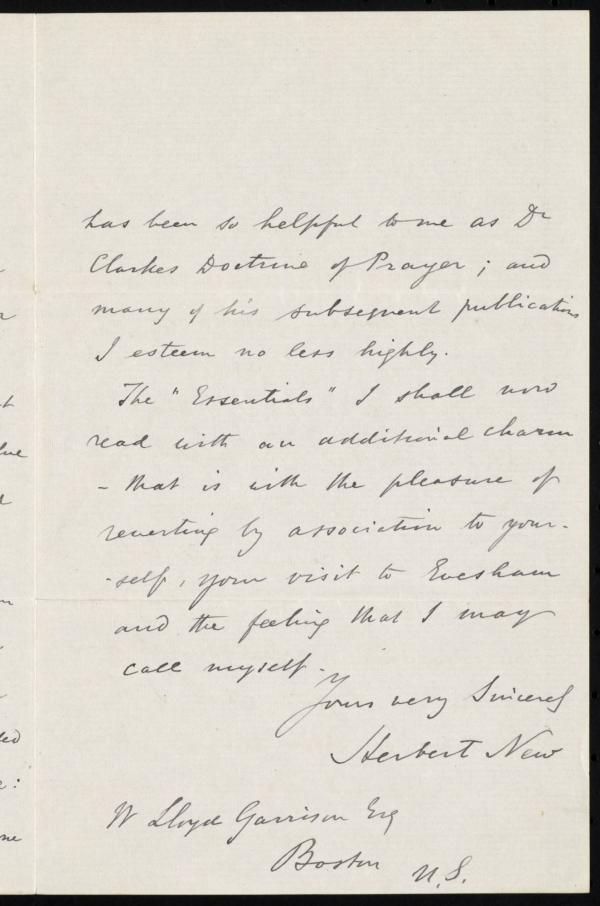 has been so helpful to me as Dr
Clarkes Doctrine of Prayer; and
many of his subsequent publications
I esteem no less highly.
The "Essentials" I shall now
read with an additional charm
- that is with the pleasure of
reverting by association to your-
-self, your visit to Evesham
and the feeling that I may
call myself.
Yours very Sincerely
Herbert New
W Lloyd Garrison Esq
Boston U.S.